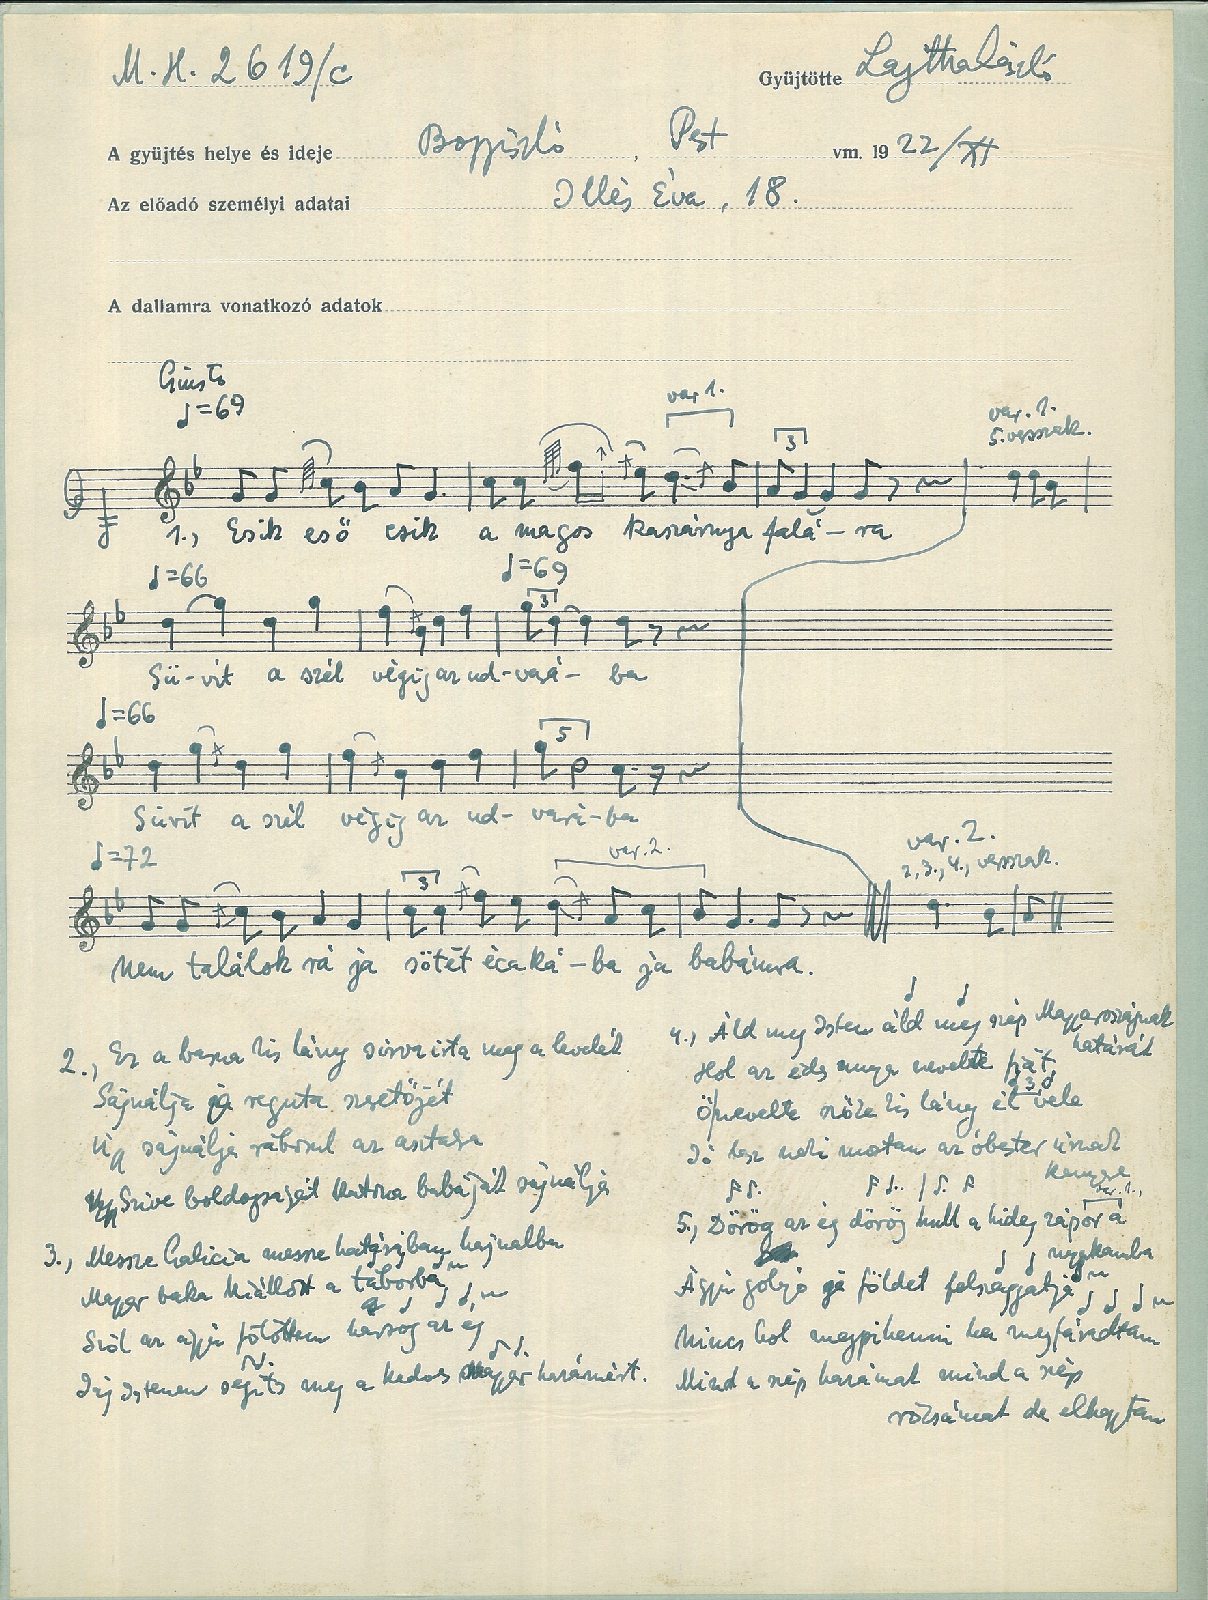 M. H. 2619/c
Gyüjtötte Lajtha László
A gyüjtés helye és ideje , Pest vm. 19 22/XII
Az előadó személyi adatai Illés Éva, 18.
A dallamra vonatkozó adatok
Giusto
♩=69
var 1.
var. 1.
5. verssak.
3
1., Esik eső esik a magos kaszárnya falá-ra
♩=66
♩=69
3
Sü-vít a szél végig az ud-vará-ba
♩=66
5
Süvít a szél végig az ud-vará-ba
♩=72
3
var. 2.
var. 2.
2, 3., 4., verssak.
Nem találok rá ja sötét écaká-ba ja babámra.
2., Ez a barna kis lány sírva írta meg a levelét
Sajnálja ja reguta szeretőjét
Ugy sajnálja ráborul az asztalra
Szive boldogságát katona babáját sajnálja
3., Messze Galicia messze határjában hajnalba
Magyar baka kiállott a táborba
Szól az ágyú fölöttem harsog az ég
Jaj Istenem segíts meg a kedves Magyar hazámért.
4., Áld meg Isten áld meg szép Magyarországnak
határát
Hol az édes anya nevelte fiát
3
Fölnevelte szőke kis lány él vele
Jó lesz neki mostan az óbester úrnak
kenyere
5., Dörög az ég dörög hull a hideg zápor a
var. 1.,
nyakamba
Ágyú golyó ja földet felszaggatja
Nincs hol megpihenni ha megfáradtam
Mind a szép hazámat mind a szép
rózsámat de elhagytam